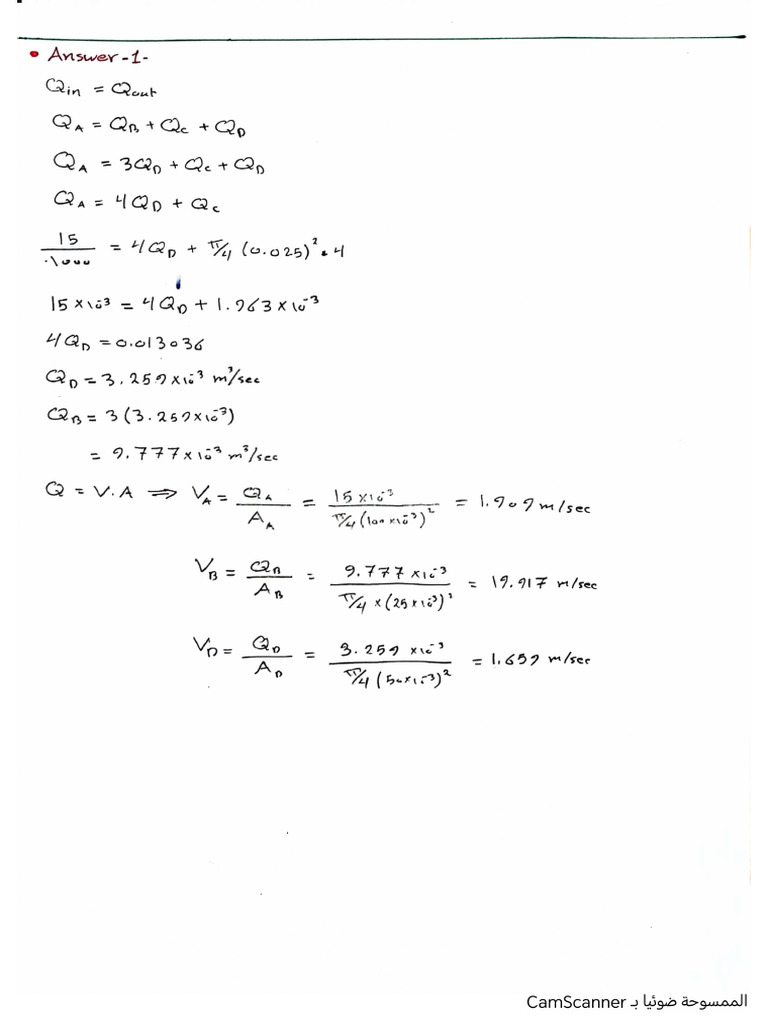 • Answer -1-
Qin = Qout
QA = QB + QC + QD
QA = 3QD + QC + QD
QA = 4QD + QC
15/1000 = 4QD + π/4 (0.025)² * 4
15 × 10⁻³ = 4QD + 1.963 × 10⁻³
4QD = 0.013036
QD = 3.259 × 10⁻³ m³/sec
QB = 3 (3.259 × 10⁻³)
= 9.777 × 10⁻³ m³/sec
Q = V.A ⇒ VA = QA/AA = 15 × 10⁻³ / π/4 (100 × 10⁻³)² = 1.909 m/sec
VB = QB/AB = 9.777 × 10⁻³ / π/4 × (25 × 10⁻³)² = 19.917 m/sec
VD = QD/AD = 3.259 × 10⁻³ / π/4 (50 × 10⁻³)² = 1.659 m/sec
الممسوحة ضوئيا بـ CamScanner